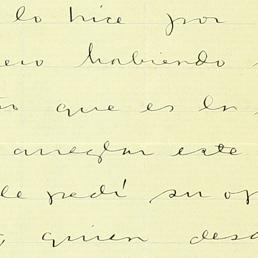 lo hice por
ero habiendo
o que es la
arreglar este
le pedí su op
quien des